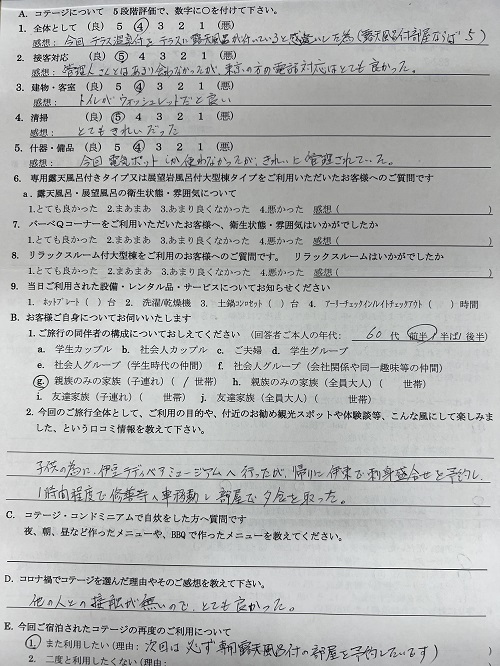 A. コテージについて 5段階評価で、数字に○を付けて下さい。
1. 全体として (良) 5 4 3 2 1 (悪)
感想: 今回 テラス温泉付をテラスに露天風呂が付いていると感違いした為 (露天風呂付部屋ならば 5)
2. 接客対応 (良) 5 4 3 2 1 (悪)
感想: 管理人さんとはあまり会わなかったが、東京の方の電話対応はとても良かった。
3. 建物・客室 (良) 5 4 3 2 1 (悪)
感想: トイレがウォッシュレットだと良い
4. 清掃 (良) 5 4 3 2 1 (悪)
感想: とてもきれいだった
5. 什器・備品 (良) 5 4 3 2 1 (悪)
感想: 今回 電気ポットしか使わなかったが、きれいに管理されていた。
6. 専用露天風呂付きタイプ又は展望岩風呂付大型棟タイプをご利用いただいたお客様へのご質問です
a. 露天風呂・展望風呂の衛生状態・雰囲気について
1.とても良かった 2.まあまあ 3.あまり良くなかった 4.悪かった 感想 ( )
7. バーベQコーナーをご利用いただいたお客様へ、衛生状態・雰囲気はいかがでしたか
1.とても良かった 2.まあまあ 3.あまり良くなかった 4.悪かった 感想 ( )
8. リラックスルーム付大型棟をご利用のお客様へのご質問です。 リラックスルームはいかがでしたか
1.とても良かった 2.まあまあ 3.あまり良くなかった 4.悪かった 感想 ( )
9. 当日ご利用された設備・レンタル品・サービスについてお知らせください
1. ホットプレート ( ) 台 2. 洗濯/乾燥機 3. 土鍋コンロセット ( ) 台 4. アーリーチェックイン/レイトチェックアウト ( ) 時間
B. お客様ご自身についてお伺いいたします
1.ご旅行の同伴者の構成についておしえてください (回答者ご本人の年代: 60 代 前半/ 半ば/ 後半)
a. 学生カップル b. 社会人カップル c. ご夫婦 d. 学生グループ
e. 社会人グループ (学生時代の仲間) f. 社会人グループ (会社関係や同一趣味等の仲間)
g. 親族のみの家族 (子連れ) ( 1 世帯) h. 親族のみの家族 (全員大人) ( 世帯)
i. 友達家族 (子連れ) ( 世帯) j. 友達家族 (全員大人) ( 世帯)
2. 今回のご旅行全体として、ご利用の目的や、付近のお勧め観光スポットや体験談等、こんな風にして楽しみま
した、という口コミ情報を教えて下さい。
子供の為に、伊豆テディベアミュージアムへ行ったが、帰りに伊東で刺身盛合せを予約し、
1時間程度で修善寺へ車移動し 部屋で夕食を取った。
C. コテージ・コンドミニアムで自炊をした方へ質問です
夜、朝、昼など作ったメニューや、BBQで作ったメニューを教えてください。
D. コロナ禍でコテージを選んだ理由やそのご感想を教えて下さい。
他の人との接触が無いので、とても良かった。
E. 今回ご宿泊されたコテージの再度のご利用について
1. また利用したい (理由: 次回は必ず専用露天風呂付の部屋を予約したいです)
2. 二度と利用したくない (理由: